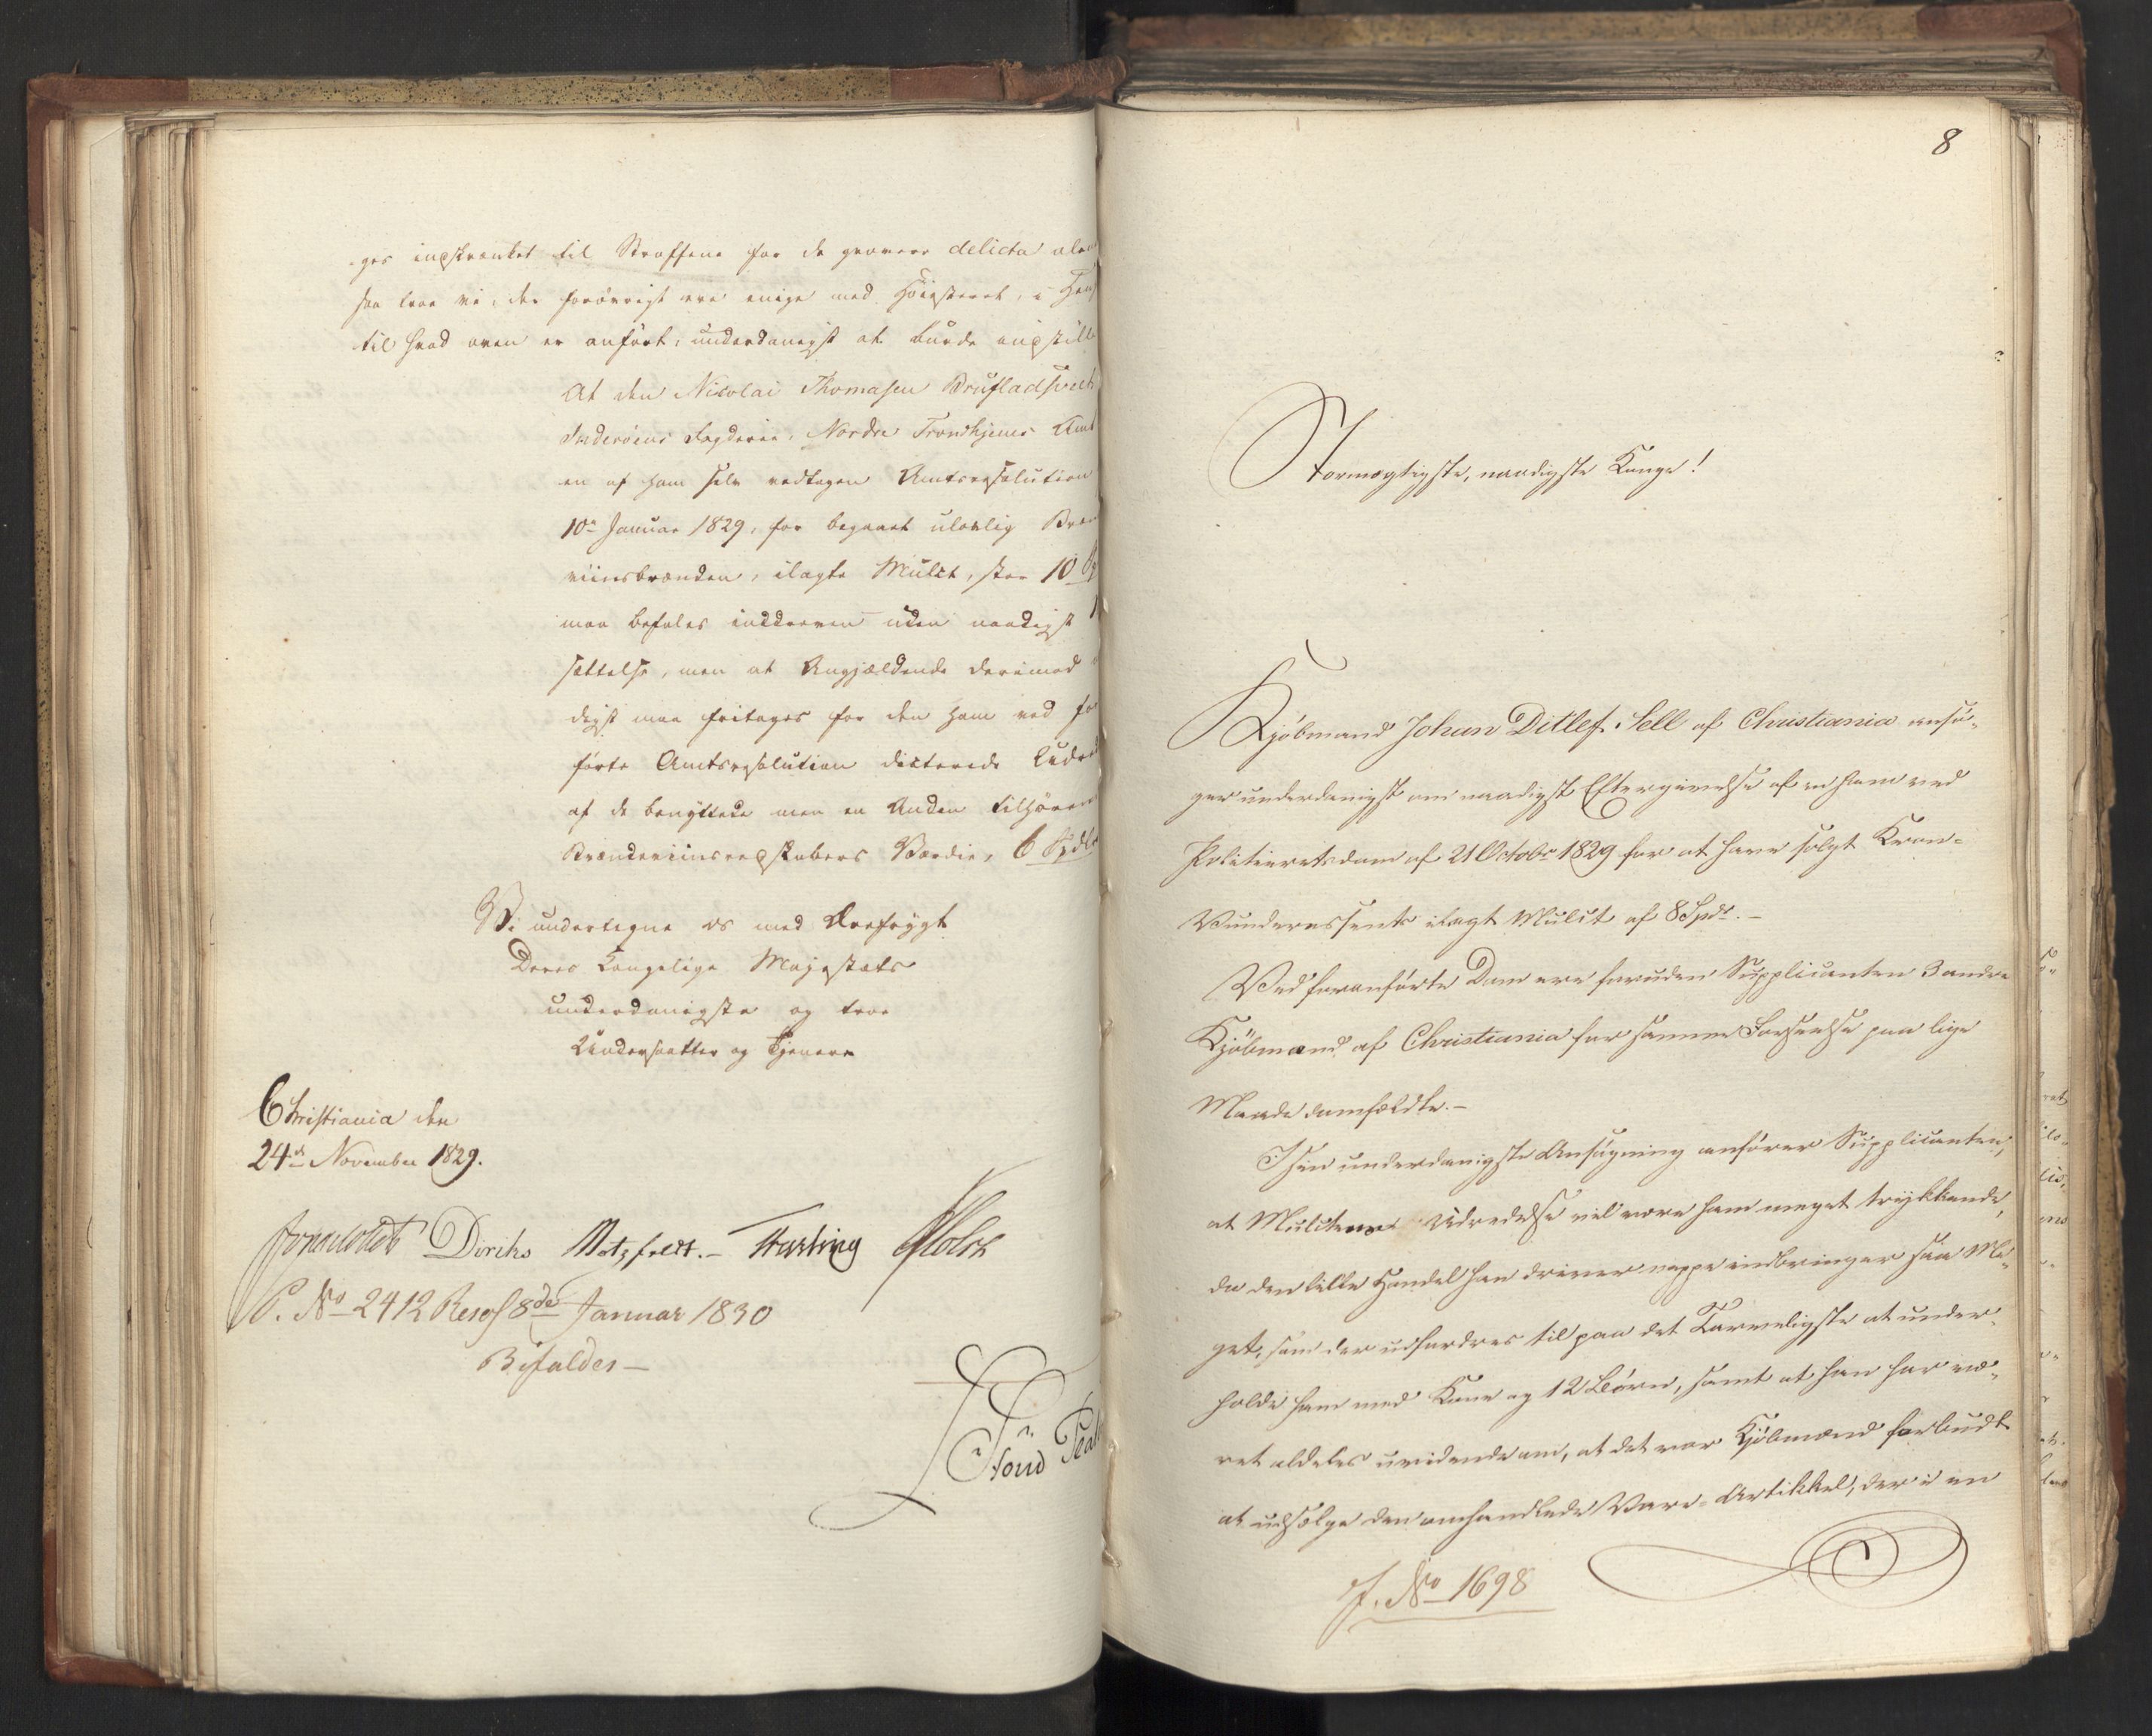 ges indskrænket til Straffene for de grovere delicta
saa troe vi, der forövrigt ere enige med Höiesteret, i
til hvad oven er anfört, underdanigst at burde indstille
At den Nicolai Thomasen
Inderöens Fogderie, Nordre Trondhjems Amt
en af ham selv vedtagen Amtsresolution
10de Januar 1829, for begaaet ulovlig
viinsbrænden, ilagte Mulct, stor 10
maa befales inddreven uden naadigst
sættelse, men at Angjældende derimod
digst maa fritages for den ham ved
förte Amtsresolution dicterede
af de benyttede men en Anden tilhörende
Brændeviinsredskabers Værdie, 6 Spdlr
Vi undertegne os med Ærefrygt
Deres Kongelige Majestæts
underdanigste og troe
Undersaatter og Tjenere
Christiania den
24de November 1829.
Diriks Motzfeldt.- Holst
P. No 2412 Resol 8de Januar 1830
Bifaldes -
8
Stormægtigste, naadigste Konge!
Kjöbmand Johan Ditlef Sell af Christiania ansö-
ger underdanigst om naadigst Eftergivelse af en ham ved
Politieretsdom af 21 Octobr 1829 for at have solgt Kron-
Vunderessents ilagt Mulct af 8 Spd. -
Ved foranförte Dom ere foruden Supplicanten 3 andre
Kjöbmænd af Christiania for samme Forseelse paa lige
Maade domfældte. -
I sin underdanigste Ansögning anförer Supplicanten,
at Mulctens Udredelse vil være ham meget trykkende,
da den lille Handel han driver neppe indbringer saa Me-
get, som der udfordres til paa det Tarveligste at under-
holde ham med Kone og 12 Börn, samt at han har væ-
ret aldeles uvidende om, at det var Kjöbmænd forbudt
at udsælge den omhandlede Vare-Artikkel, der i en
J. No 1698